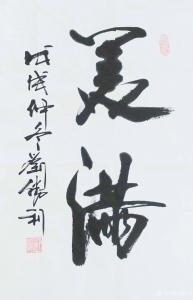 美满
戊戌仲冬刘胜利